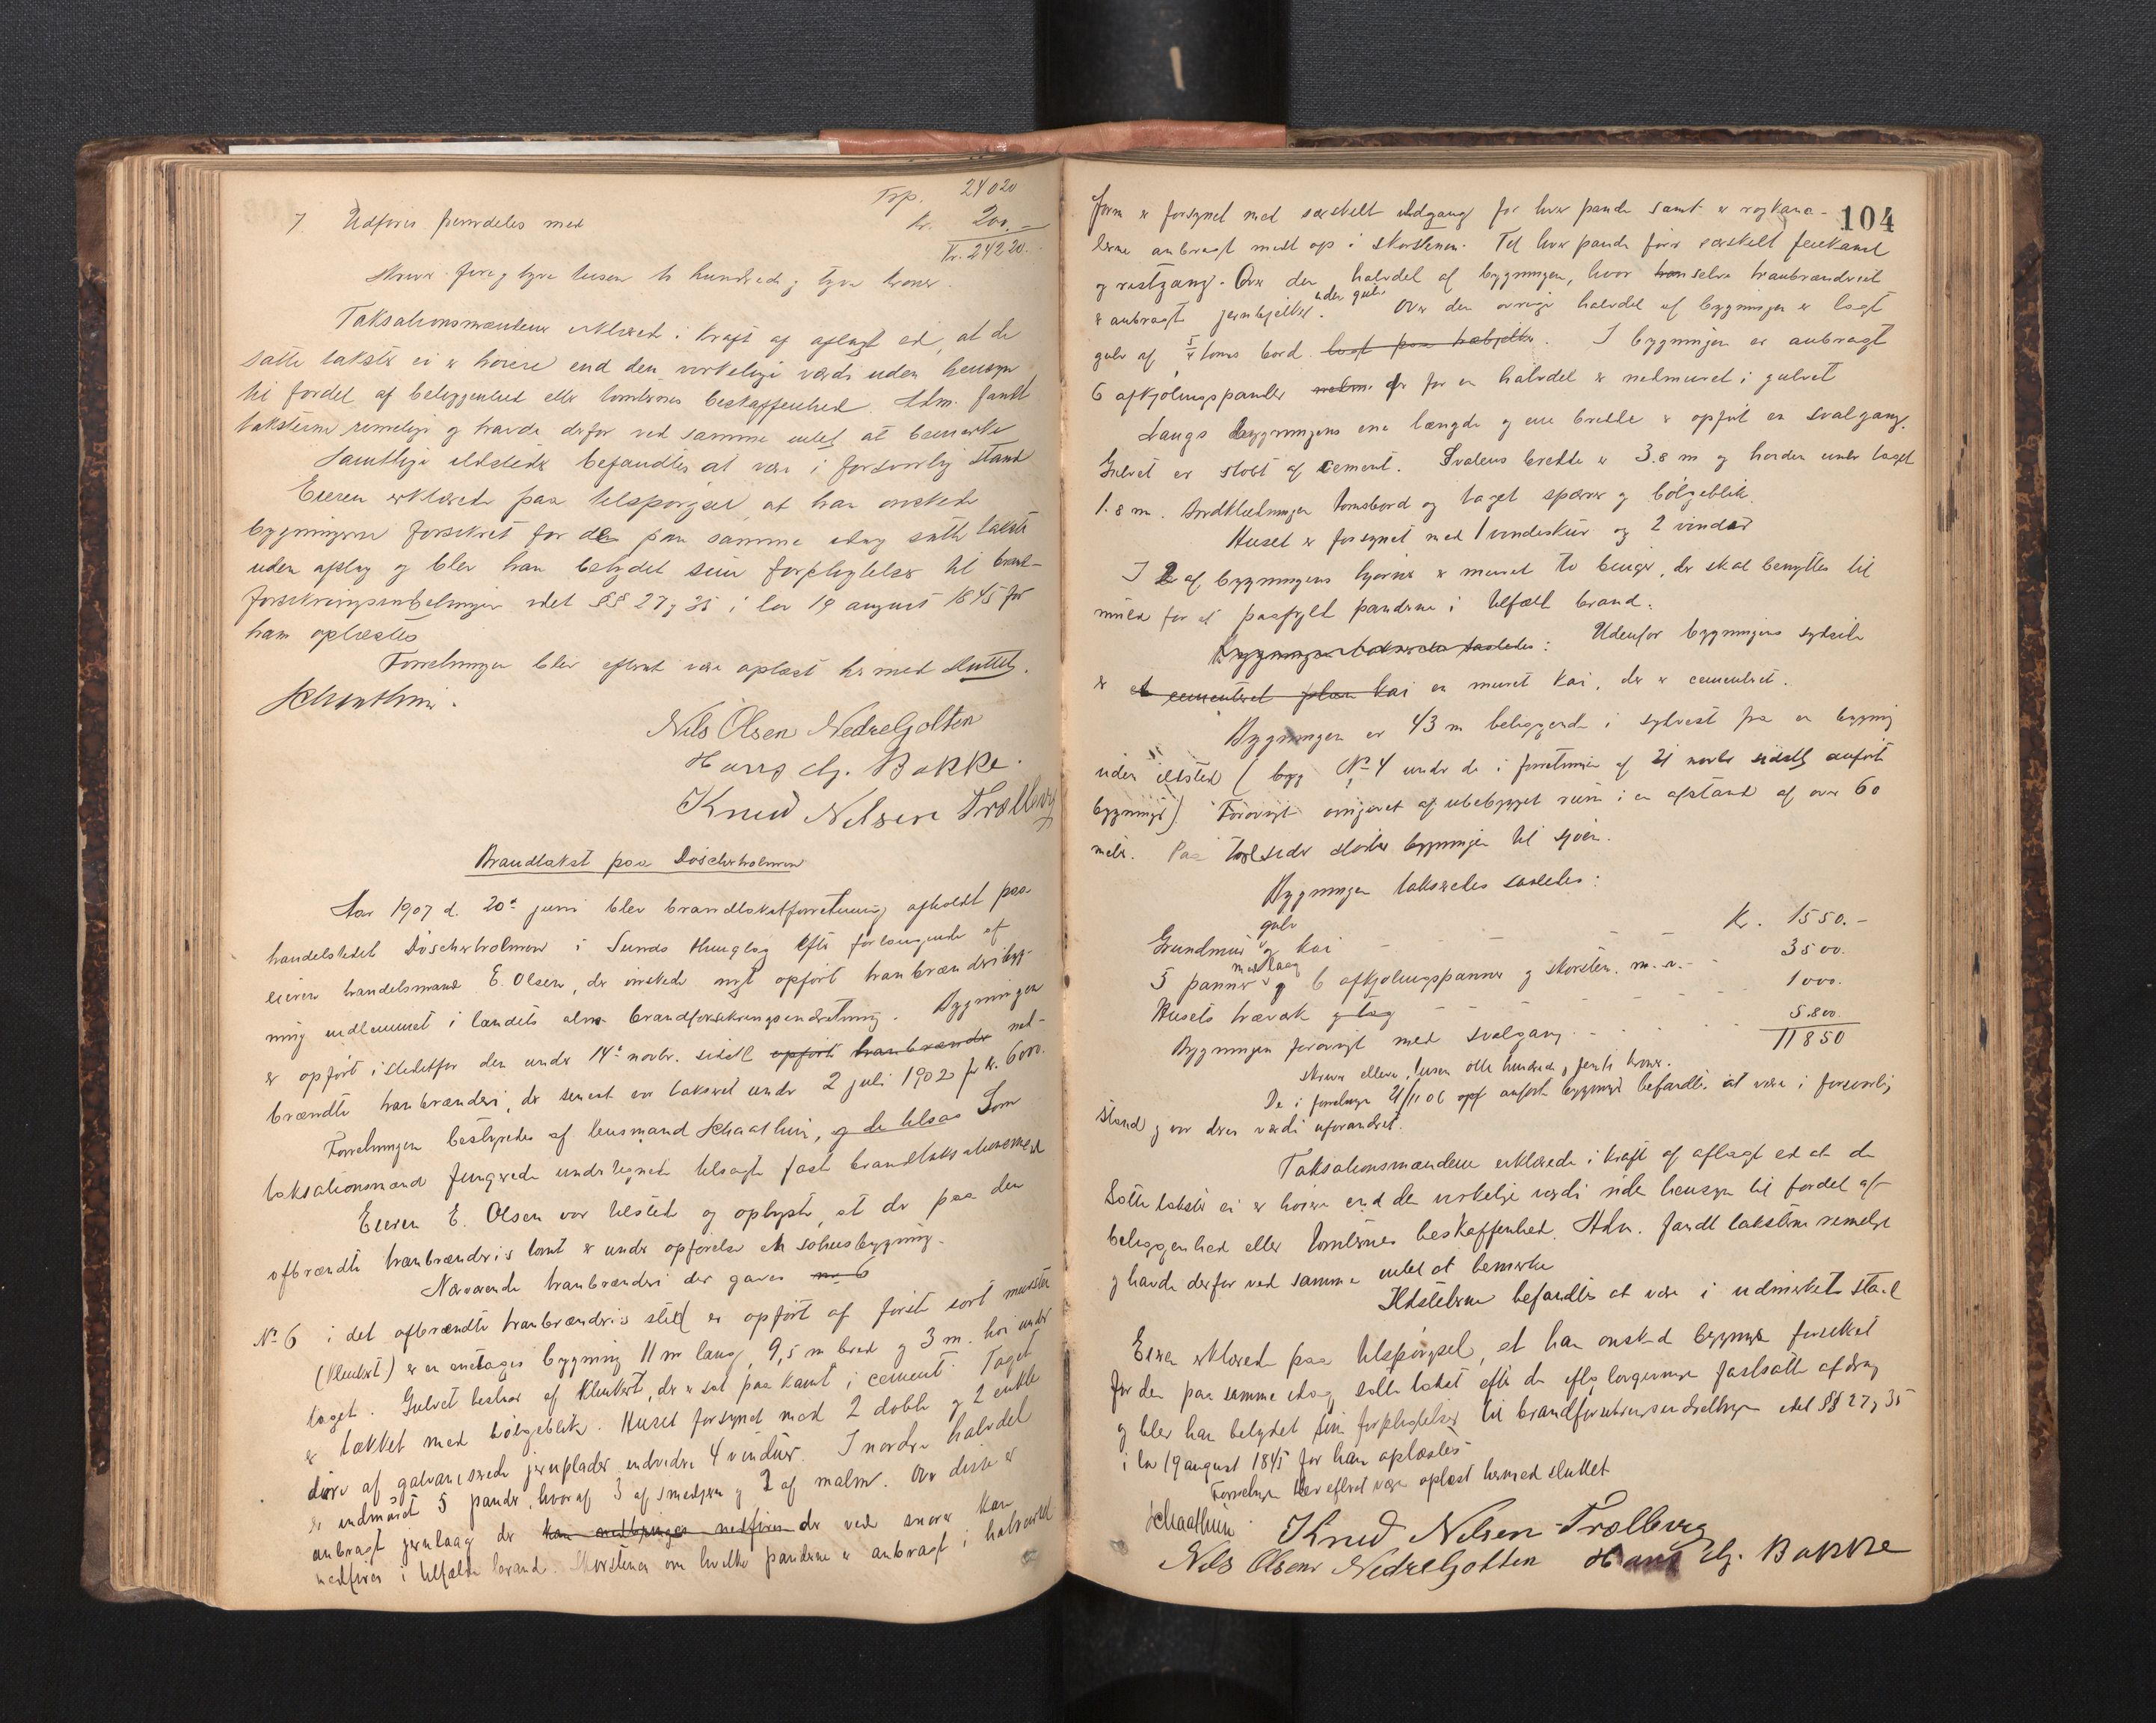 Trp. 24020
7 Udføres fremdeles med kr. 200.-
Kr. 24220.
skriver fire og tyve tusen to hundrede og tyve kroner.
Taksationsmændene erklæret i kraft af aflagt ed, at de
satte takster ei er høiere end den virkelige værdi uden hensyn
til fordel af beliggenhed eller tomternes beskaffenhed. Adm. fandt
taksterne rimelige og havde derfor ved samme intet at bemerke
Samtlige ildsteder befandtes at være i forsvarlig stand
Eieren erklærede paa tilspørgsel at han ønskede
bygningerne forsikret for de paa samme idag satte takster
uden afslag og blev han betydet sine forpligtelser til brand-
forsikringsindretningen idet §§ 27 og 35 i lov 19 august 1845 for
ham oplæstes
Forretningen blev efterat være oplæst hermed sluttet.
Schaathun.
Nils Olsen Nedregjotten
Hans Chr. Bakke.
Knud Nelsen Trællevig
Brandtakst paa Döscherholmen
Aar 1907 d. 20de juni blev brandtakstforretning afholdt paa
handelstedet Döscherholmen i Sunds thinglag efter forlangende af
eieren handelsmand E. Olsen, der ønskede nyt opført tranbrænderibyg-
ning indlemmet i landets alm. brandforsikringsindretning. Bygningen
er opført istedetfor den under 14de novbr. sidstl opført tranbrænder ned-
brændte tranbrænderi, der senest var takseret under 2 juli 1902 for kr. 6000.
Forretningen bestyredes af lensmand Schaathun, og de tilsaa Som
taksationsmænd fungerede undertegnede tilsagte faste brandtaksationsmænd
Eieren E. Olsen var tilstede og oplyste, at der paa den
afbrændte tranbrænderis tomt er under opførelse en søhusbygning.
Nærværende tranbrænderi der gaves no 6
No 6 i det afbrændte tranbrænderis sted er opført af første sort mursten
(klinkert) er en enetages bygning 11 m lang, 9,5 m bred og 3 m. høi under
taget. Gulvet bestaar af klinkert, der er sat paa kant i cement. Taget
er tækket med bølgeblik. Huset forsynet med 2 doble og 2 enkle
døre af galvaniserede jernplader endvidere 4 vinduer. I nordre halvdel
er indmuret 5 pander, hvoraf 3 af smedjern og 2 af malm. Over disse er
anbragt jernlaag der kan nedbringes nedfires der ved snorer kan
nedfires i tilfælde brand. Skorstenen om hvilke panderne er anbragt i halvcirkel
104
form er forsynet med særskelt ildgang for hver pande samt er røgkana-
lerne anbragt midt op i skorstenen. Til hver pande fører særskelt feiekant
og røstgang. Over den halvdel af bygningen, hvor tran selve tranbrænderiet
er anbragt jernbjelker. uden gulv Over den øvrige halvdel af bygningen er lagt
gulv af 5/4 toms bord. lagt paa træbjelker. I bygningen er anbragt
6 afkjølingspander nedm. der for en halvdel er nedmuret i gulvet
Langs bygningens ene længde og ene bredde er opført en svalgang.
Gulvet er støbt af cement. Svalens bredde er 3.8 m og høiden under taget
1.8 m. Bordklædningen tomsbord og taget spærrer og bølgeblik.
Huset er forsynet med 1 vindeskur og 2 vinduer
I 2 af bygningens hjørner er muret to binger, der skal benyttes til
muld for at paafylt panderne i tilfælt brand.
Bygningen takseredes saaledes: Udenfor bygningens sydside
er et cementeret plan kai en muret kai, der er cementeret.
Bygningen er 43 m beliggende i sydvest fra en bygning
uden ildsted (bygg No 4 under de i forretninger af 21 novbr sidstl anførte
bygninger). Forøvrigt omgivet af ubebygget rum i en afstand af over 60
meter. Paa to sider støder bygningen til sjøen.
Bygningen takseredes saaledes:
Grundmur gulv og kai - - - Kr. 1550.-
5 panner med laag og 6 afkjølingspanner og skorsten. m.v. - 3500.
Husets træverk og tag - - - 1000.
Bygningen forøvrigt med svalgang - - - 5.800.
11850
skriver elleve tusen otte hundrede og femti kroner.
De i forretningen 21/11 06 opf anførte bygninger befandtes at være i forsvarlig
stand og var deres værdi uforandret.
Taksationsmændene erklærede i kraft af aflagt ed at de
satte takster ei er høiere end den virkelige værdi uden hensyn til fordel af
beliggenhed eller tomternes beskaffenhed. Adm. fandt taksterne rimelige
og havde derfor ved samme intet at bemerke
Ildstederne befandtes at være i udmerket stand
Eieren erklærede paa tilspørgsel, at han ønsked bygningen forsikret
for den paa samme idag satte takst efter de efter lovgivningen fastsatte afdrag
og blev han betydet sine forpligtelser til brandforsikringsindretningen idet §§ 27 og 35
i lov 19 august 1845 for ham oplæstes
Forretningen blev efterat være oplæst hermed sluttet.
Schaathun. Knud Nelsen Trællevig
Nils Olsen Nedregjotten Hans Chr. Bakke